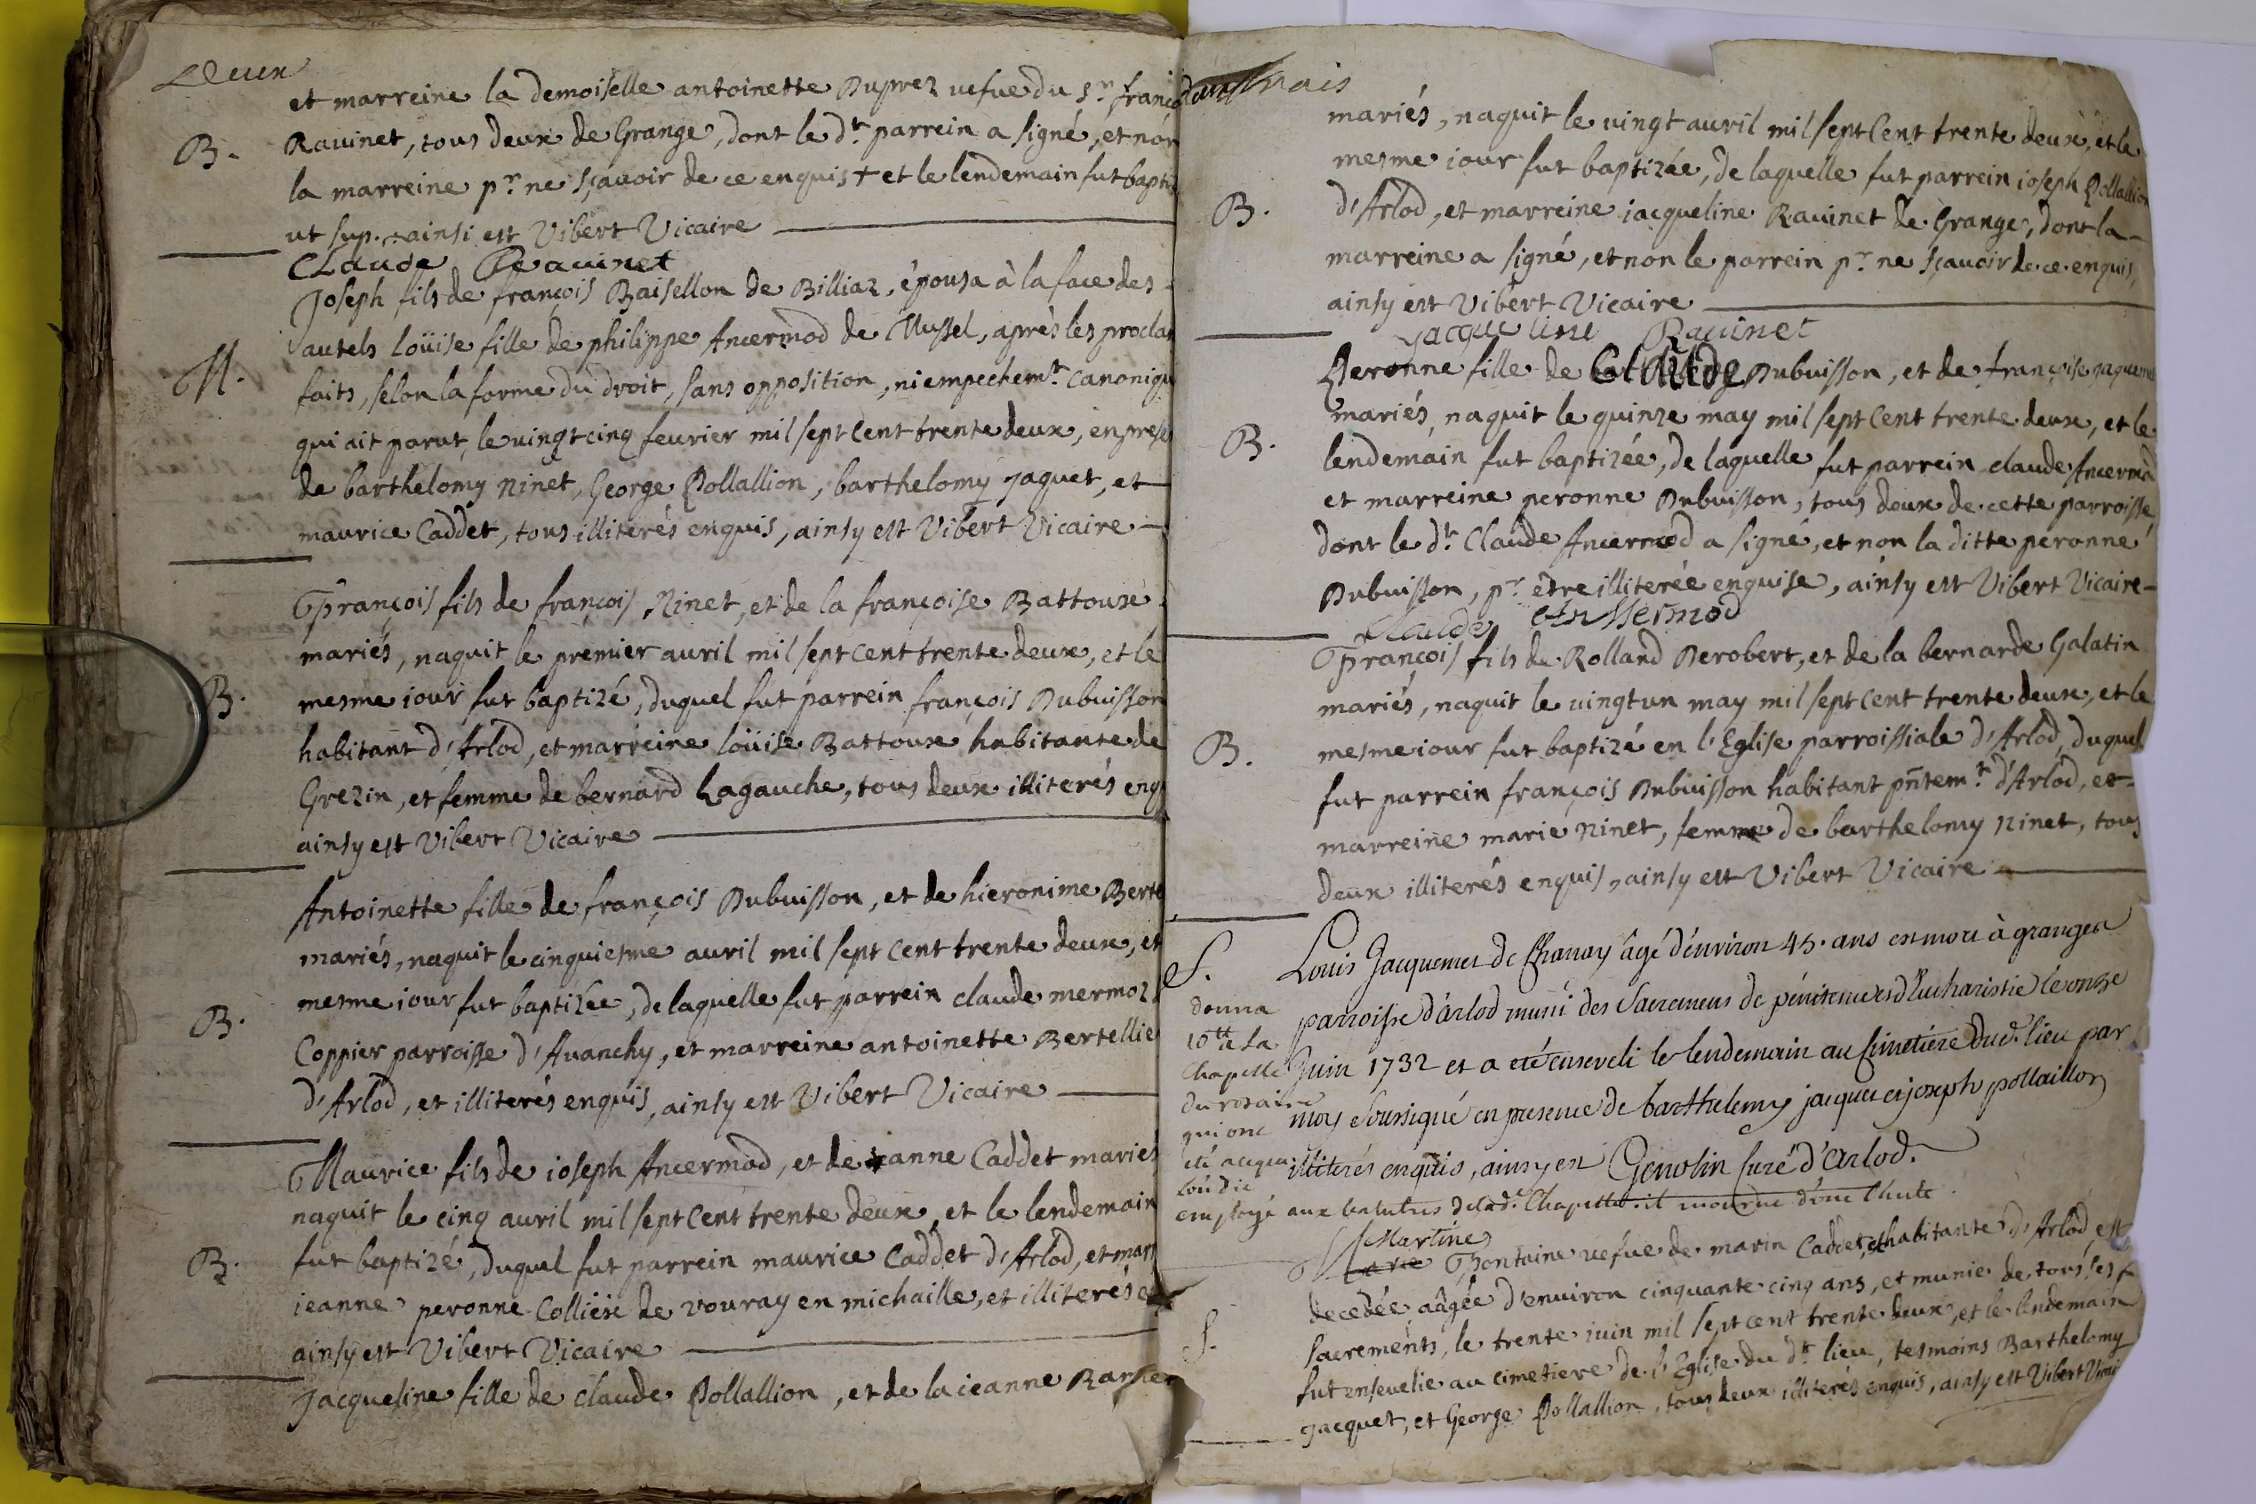 Deux
et marreine la demoiselle antoinette Duprez uefue du sr. franco
B. Rauinet, tous deux de Grange, dont le dt. parrein a signé, et non
la marreine pr. ne sçauoir de ce enquis + et le lendemain fut bapti
ut sup. ainsi est Vibert Vicaire
Claude Rauinet
Joseph fils de françois Baisellon de Billiaz, épousa à la face des
autels loüise fille de philippe Ancermod de Mussel, aprés les procla
M. faits, selon la forme du droit, sans opposition, ni empechemt. canoniqu
qui ait parut, le uingt cinq feurier mil sept cent trente deux, en prese
de barthelomy ninet, George Pollallion, barthelomy jaquet, et
maurice Caddet, tous illiterés enquis, ainsy est Vibert Vicaire
François fils de françois Ninet, et de la françoise Battoux
mariés, naquit le premier auril mil sept cent trente deux, et le
B. mesme iour fut baptizé, duquel fut parrein françois Dubuisson
habitant d'Arlod, et marreine loüise Battoux habitante de
Grezin, et femme de bernard Lagauche, tous deux illiterés enq
ainsy est Vibert Vicaire
Antoinette fille de françois Dubuisson, et de hieronime Berte
mariés, naquit le cinquiesme auril mil sept cent trente deux, et
B. mesme iour fut baptizée, de laquelle fut parrein claude mermoz
Coppier parroisse d'Auanchy, et marreine antoinette Bertellie
d'Arlod, et illiterés enquis, ainsy est Vibert Vicaire
Maurice fils de ioseph Ancermod, et de ieanne Caddet mariés
naquit le cinq auril mil sept cent trente deux, et le lendemain
B. fut baptizé, duquel fut parrein maurice Caddet d'Arlod, et marr
ieanne peronne Collière de vouray en michaille, et illiterés e
ainsy est Vibert Vicaire
Jacqueline fille de claude Pollallion, et de la ieanne
mariés, naquit le uingt auril mil sept Cent trente deux, et le
mesme iour fut baptizée, de laquelle fut parrein ioseph Pollallion
B. d'Arlod, et marreine iacqueline Rauinet de Grange, dont la
marreine a signé, et non le parrein pr. ne sçauoir de ce enquis,
ainsy est Vibert Vicaire
jacque line Rauinet
Peronne fille de Claude Dubuisson, et de françoise
mariés, naquit le quinze may mil sept Cent trente deux, et le
B. lendemain fut baptizée, de laquelle fut parrein claude Ancermod
et marreine peronne Dubuisson, tous deux de cette parroisse
dont le dt. Claude Ancermod a signé, et non la ditte peronne
Dubuisson, pr. être illiterée enquise, ainsy est Vibert Vicaire
Claude Anssermod
François fils de Rolland Derobert, et de la bernarde Galatin
mariés, naquit le uingt un may mil sept cent trente deux, et le
B. mesme iour fut baptizé en l'Eglise parroissiale d'Arlod, duquel
fut parrein françois Dubuisson habitant pñtemt. d'Arlod, et
marreine marie ninet, femme de barthelomy ninet, tous
deux illiterés enquis, ainsy est Vibert Vicaire
S. Louis Jacquemet de Chanay âgé d'environ 45. ans est mort à granges
parroisse d'arlod muni des Sacremens de pénitence et d'Eucharistie le onze
Juin 1732 et a eté enseveli le lendemain au Cimetiére dud. lieu par
moy Soussigné en presence de barthelemy jacquet et joseph pollaillon
illiterés enquis, ainsy est Genolin Curé d'Arlod.
donna
10 tt a la
Chapelle
du rosaire
qui ont
eté
employé aux balustres de lad. Chapelle. il mourut d'une Chute.
Martine
Marie Fontaine uefue de marin Caddet, et habitante d'Arlod, est
decedée aâgée d'enuiron cinquante cinq ans, et munie de tous ses
S. sacrements, le trente iuin mil sept cent trente deux, et le lendemain
fut enseuelie au cimetiere de l'Eglise du dt. lieu, tesmoins Barthelomy
jacquet, et George Pollallion, tous deux illiterés enquis, ainsy est Vibert Vicai